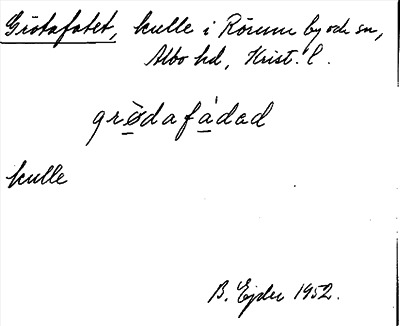 Grötafatet, kulle i Rörum by och sn,
Albo hd, Krist. l.
grødafádad
kulle
B. Ejder 1952.